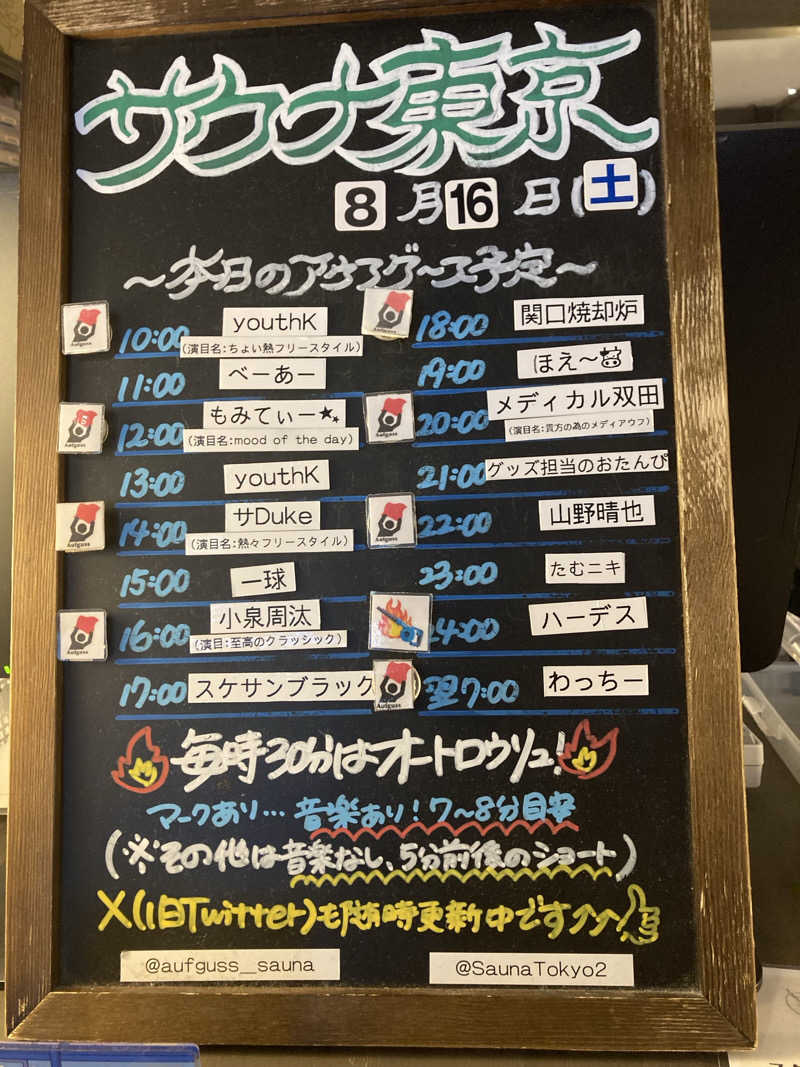 サウナ東京
8月16日(土)
～本日のアウフグース予定～
10:00 youthK
(演目名:ちょい熱フリースタイル)
11:00 べーあー
12:00 もみてぃー★★
(演目名:mood of the day)
13:00 youthK
14:00 サDuke
(演目名:熱々フリースタイル)
15:00 一球
16:00 小泉周汰
(演目:至高のクラッシック)
17:00 スケサンブラック
18:00 関口焼却炉
19:00 ほえ～
20:00 メディカル双田
(演目名:貴方の為のメディアウフ)
21:00 グッズ担当のおたんぴ
22:00 山野晴也
23:00 たむニキ
24:00 ハーデス
翌7:00 わっちー
Aufguss
Aufguss
Aufguss
Aufguss
Aufguss
Aufguss
Aufguss
Aufguss
毎時30分はオートロウリュ!
マークあり…音楽あり!7～8分目安
(※その他は音楽なし、5分前後のショート)
X(旧Twitter)も随時更新中です↗↗
@aufguss__sauna
@SaunaTokyo2